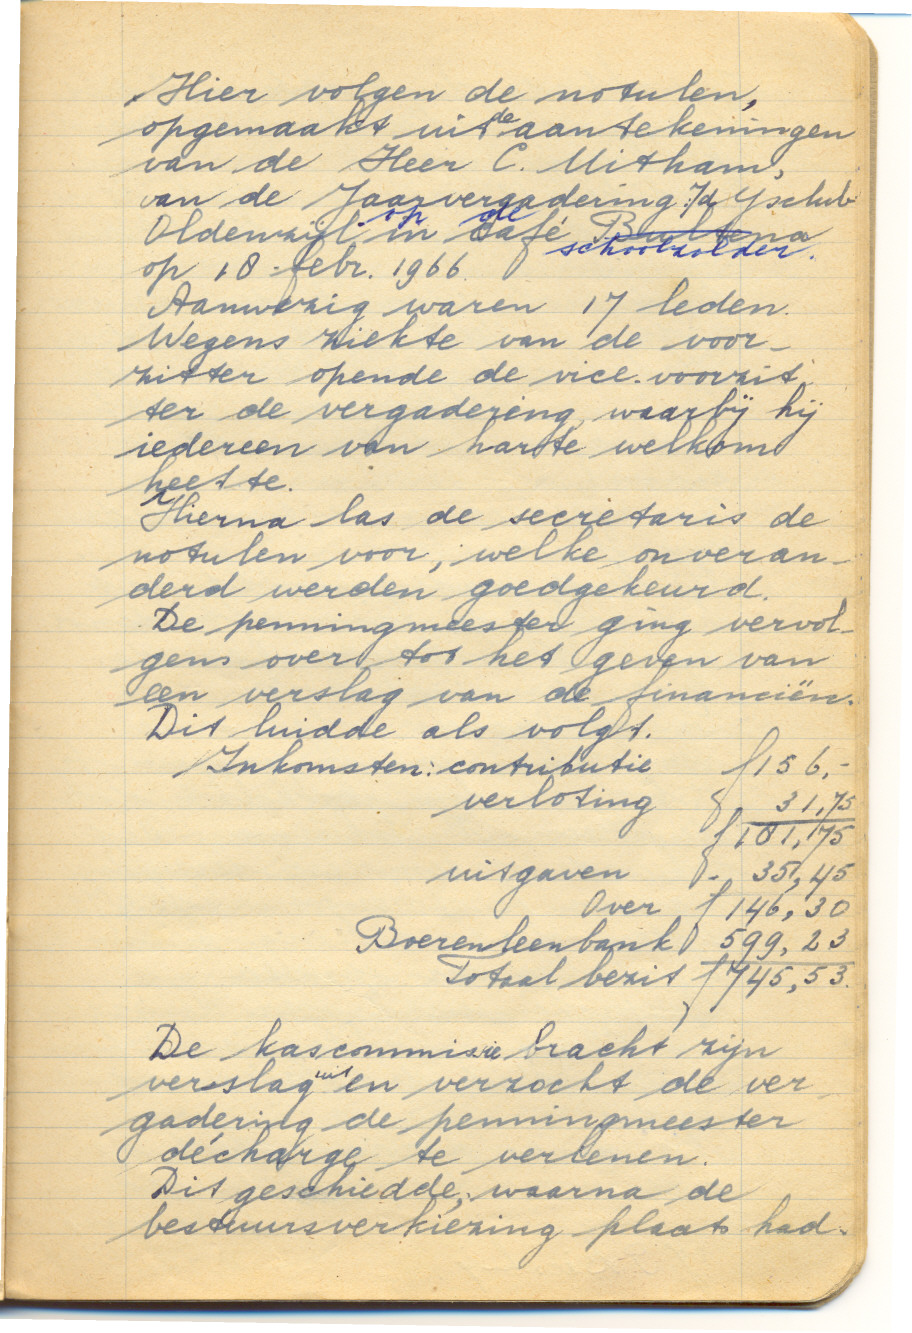 Hier volgen de notulen,
opgemaakt uit de aantekeningen
van de Heer C. Mitham,
van de Jaarvergadering v/d Yschub
Oldenzijl in Café Bultena
op de schoolzolder.
op 18 febr. 1966
Aanwezig waren 17 leden.
Wegens ziekte van de voor-
zitter opende de vice-voorzit-
ter de vergadering, waarbij hij
iedereen van harte welkom
heette.
Hierna las de secretaris de
notulen voor, welke onveran-
derd werden goedgekeurd.
De penningmeester ging vervol-
gens over tot het geven van
een verslag van de financiën.
Dit luidde als volgt.
Inkomsten: contributie f 156,-
verloting f 31,75
f 181,75
uitgaven f - 35,45
Over f 146,30
Boerenleenbank f 599,23
Totaal bezit f 745,53.
De kascommissie bracht zijn
verslag uit en verzocht de ver
gadering de penningmeester
décharge te verlenen.
Dit geschiedde, waarna de
bestuursverkiezing plaats had.